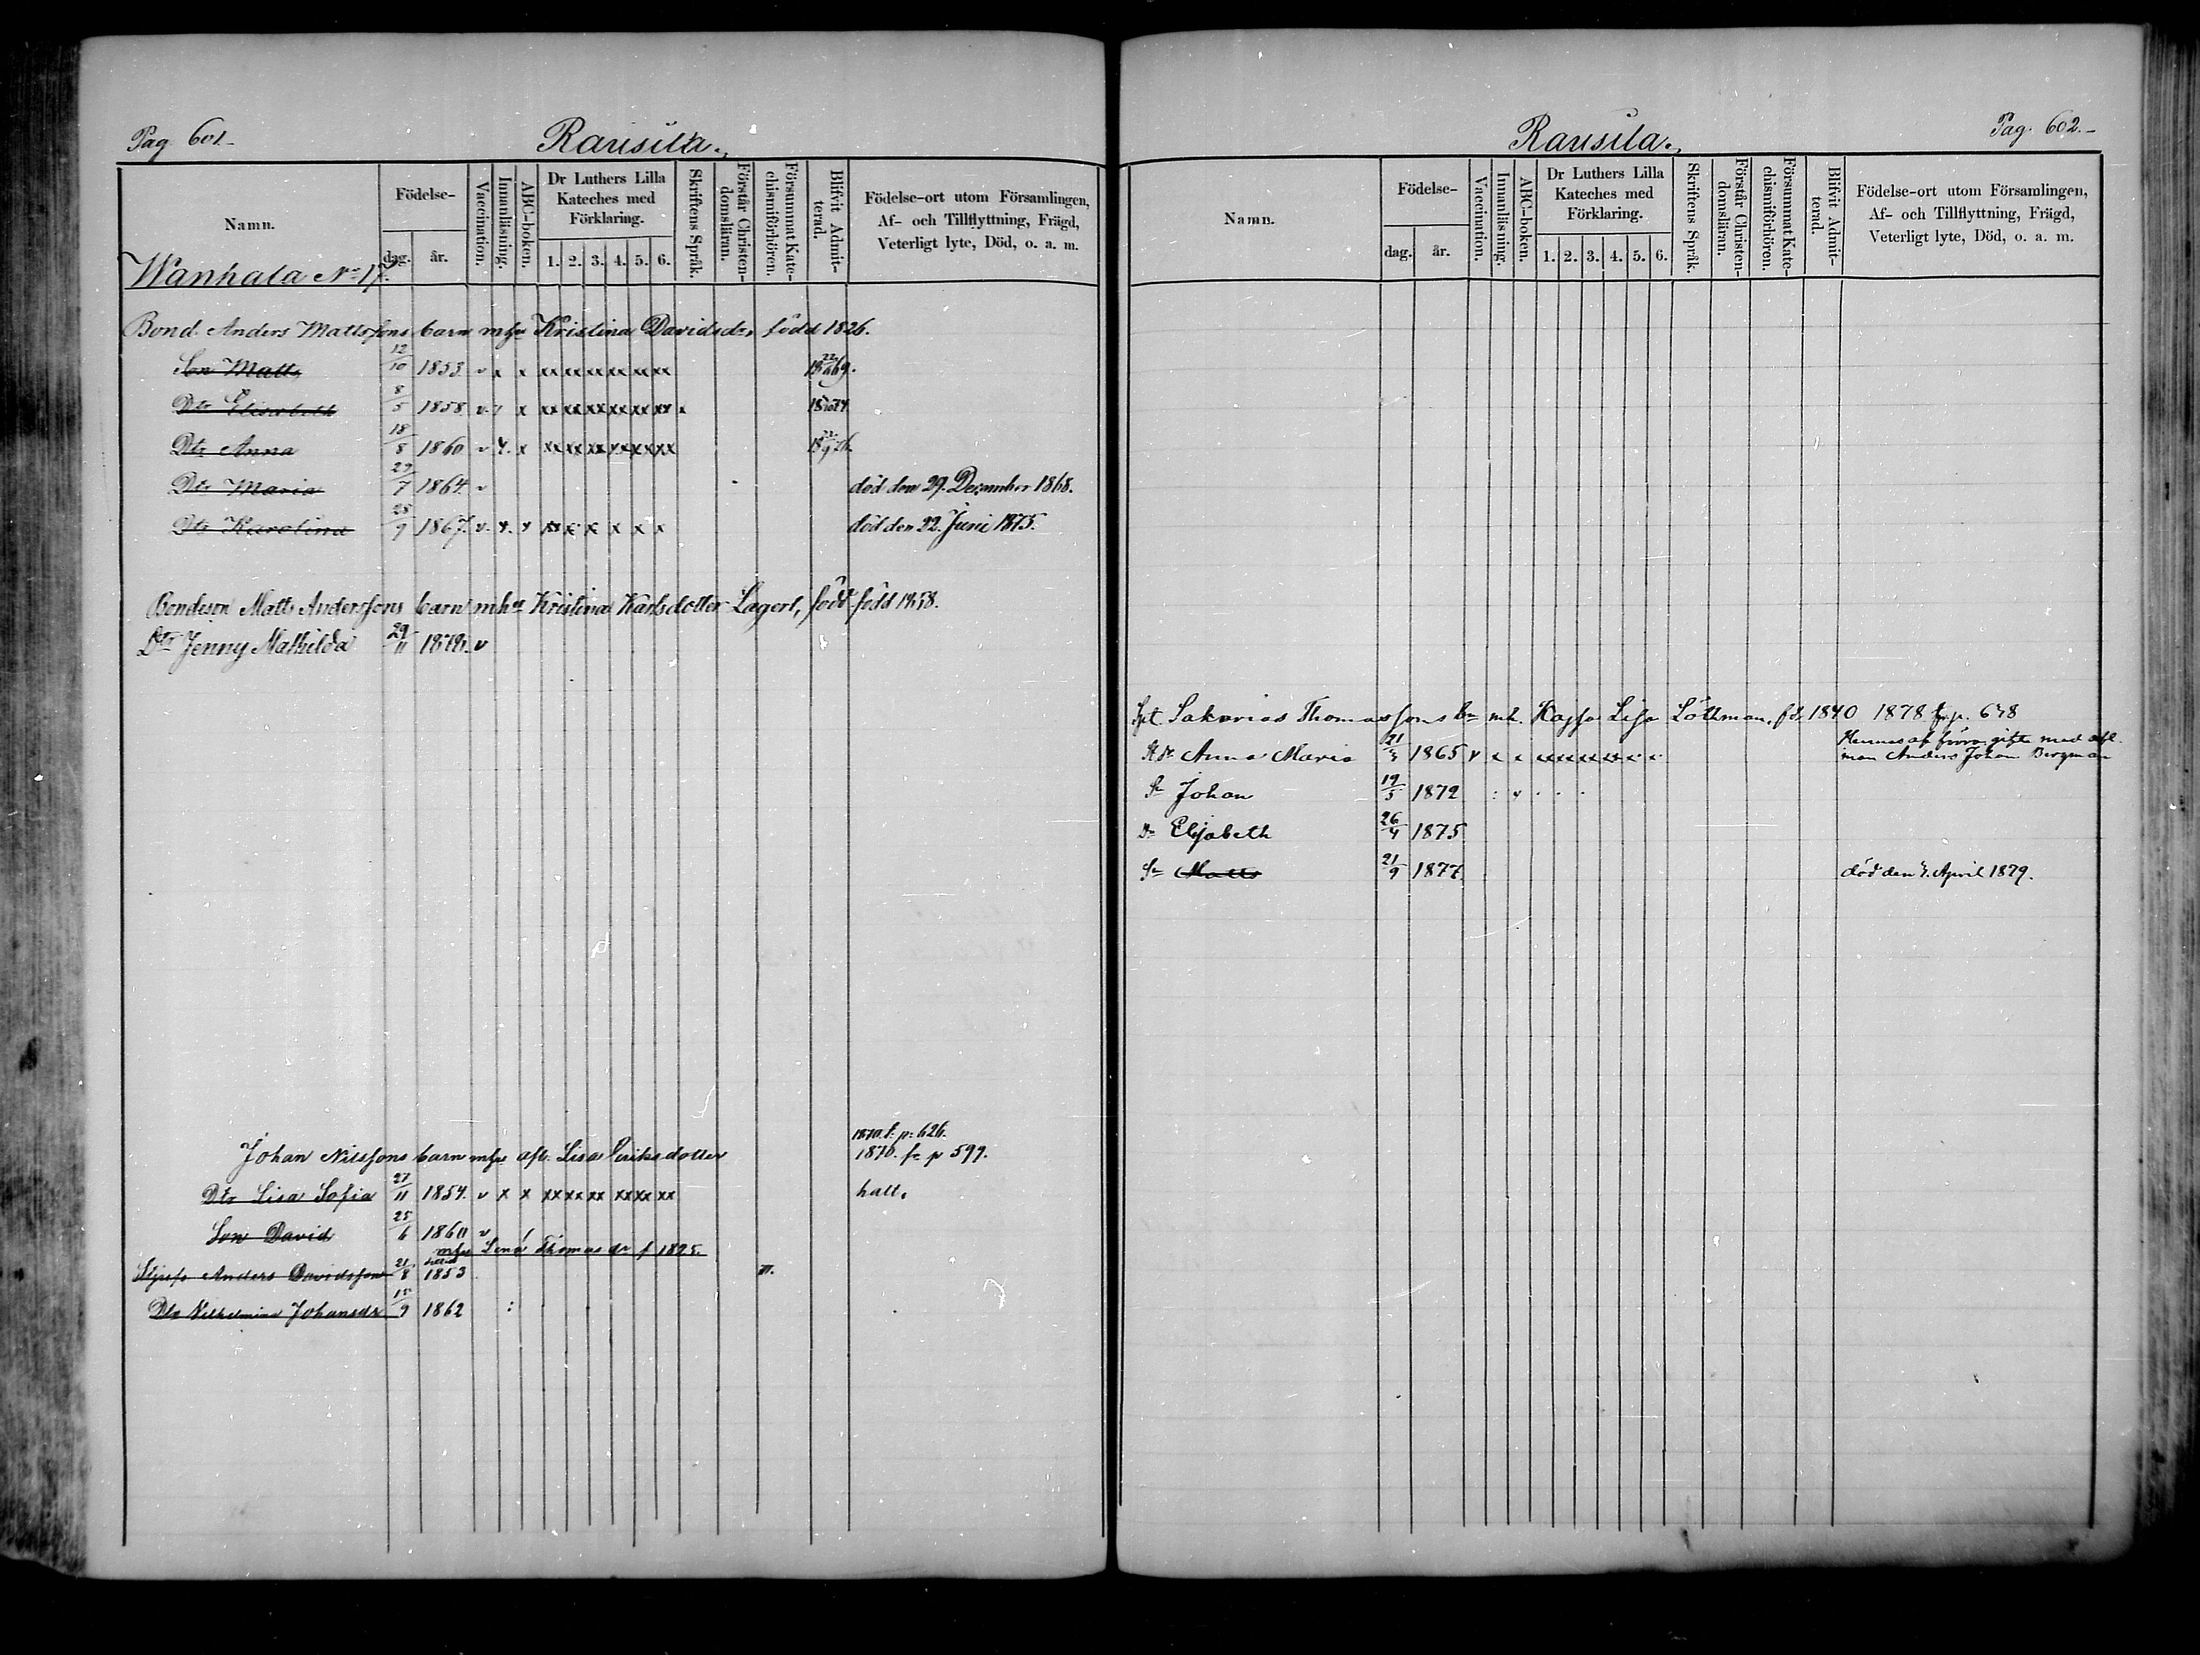 Pag. 601.
Rausila.
Namn.
Födelse-
dag.
år.
Vaccination.
Innanläsning.
ABC-boken.
Dr Luthers Lilla
Kateches med
Förklaring.
1. 2. 3. 4. 5. 6.
Skriftens Språk.
Förstår Christen-
domsläran.
Försummat Kate-
chismiförhören.
Blifvit Admit-
terad.
Födelse-ort utom Församlingen,
Af- och Tillflyttning, Frägd,
Veterligt lyte, Död, o. a. m.
Wanhala No 17.
Bond. Anders Mattsons barn mhu Kristina Davidsdr, född 1826.
Son Matts 12/10 1853 v x x xx xx xx xx xx xx
Dtr Elisabeth 8/5 1858 v x xx xx xx xx xx xx x
Dtr Anna 18/8 1860 v x xx xx xx xx xx xx
Dtr Maria 29/7 1864. v död den 29. December 1868.
Dtr Karolina 28/9 1867. v. x. x xx x x x x x död den 22. Juni 1875.
Bondeson Matts Anderssons barn mhu Kristina Karlsdotter Lagert, född född 1858.
Dtr Jenny Mathilda 29/11 1878. v
1870. f. p. 626.
Johan Nilssons barn mhu afl. Lisa Eriksdotter 1876. fr p 599.
Dtr Lisa Sofia 27/11 1854. v x x xx xx xx xx xx xx halt.
Son David 25/6 1860 v
mhu Lena Thomas dr f 1825.
Anders Davidsson 21/8 1853
Dtr Vilhelmina Johansdr 15/9 1862
Pag. 602.
Rausila.
Namn.
Födelse-
dag.
år.
Vaccination.
Innanläsning.
ABC-boken.
Dr Luthers Lilla
Kateches med
Förklaring.
1. 2. 3. 4. 5. 6.
Skriftens Språk.
Förstår Christen-
domsläran.
Försummat Kate-
chismiförhören.
Blifvit Admit-
terad.
Födelse-ort utom Församlingen,
Af- och Tillflyttning, Frägd,
Veterligt lyte, Död, o. a. m.
Spt. Sakarias Thomassons bn mh. Kajsa Lisa Löthman, fd. 1840 1878 fr p. 678
Anna Maria 1865 v x x gift med
man Anders Johan Bergman
Sn Johan 19/5 1872
Dr Elisabeth 26/4 1875
Sn Matts 21/9 1877 död den 7. April 1879.